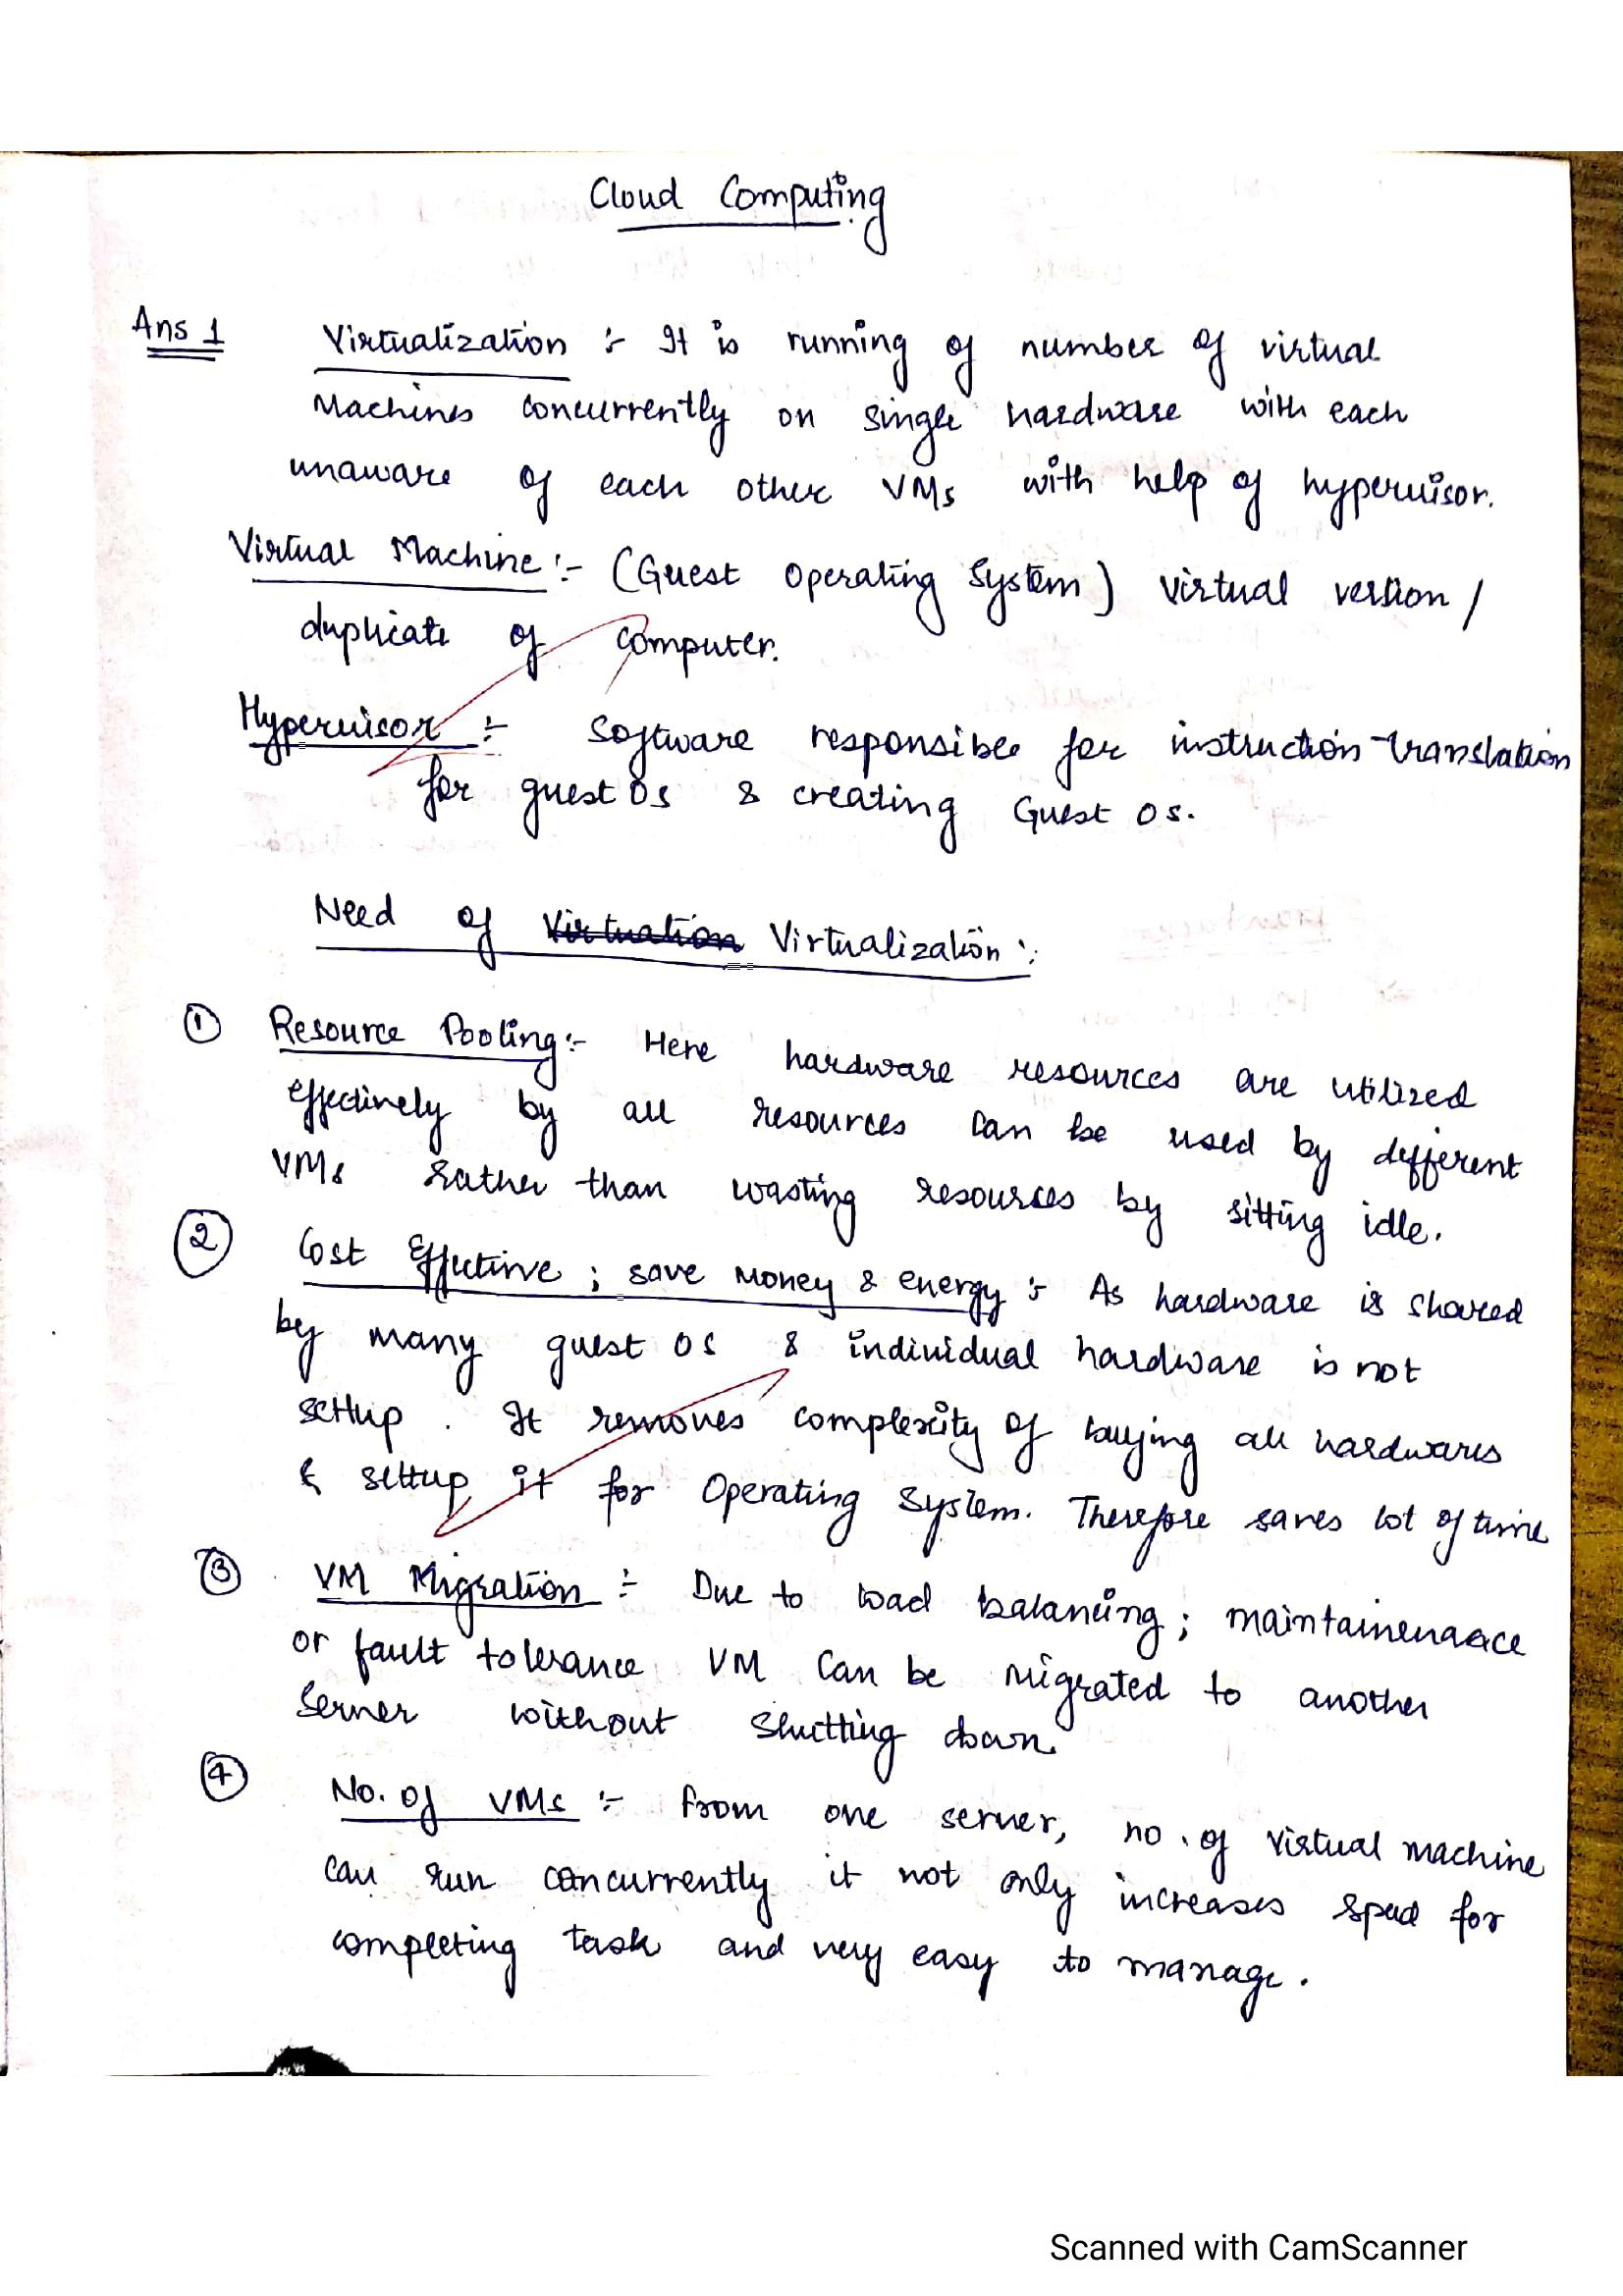 Cloud Computing
Ans 1 Virtualization :- It is running of number of virtual
Machines concurrently on single hardware with each
unaware of each other VMs with help of hypervisor.
Virtual Machine :- (Guest Operating System) Virtual version /
duplicate of computer.
Hypervisor :- Software responsible for instruction-translation
for guest OS & creating Guest OS.
Need of Virtuation Virtualization :
① Resource Pooling :- Here hardware resources are utilized
effectively by all resources can be used by different
VMs rather than wasting resources by sitting idle.
② Cost Effective ; save Money & energy :- As hardware is shared
by many guest OS & individual hardware is not
settup. It removes complexity of buying all hardwares
& settup it for Operating System. Therefore saves lot of time
③ VM Migration :- Due to load balancing; maintainenaace
or fault tolerance VM can be migrated to another
Server without Shutting down.
④ No. of VMs :- from one server, no. of virtual machine
can run concurrently it not only increases speed for
completing task and very easy to manage.
Scanned with CamScanner